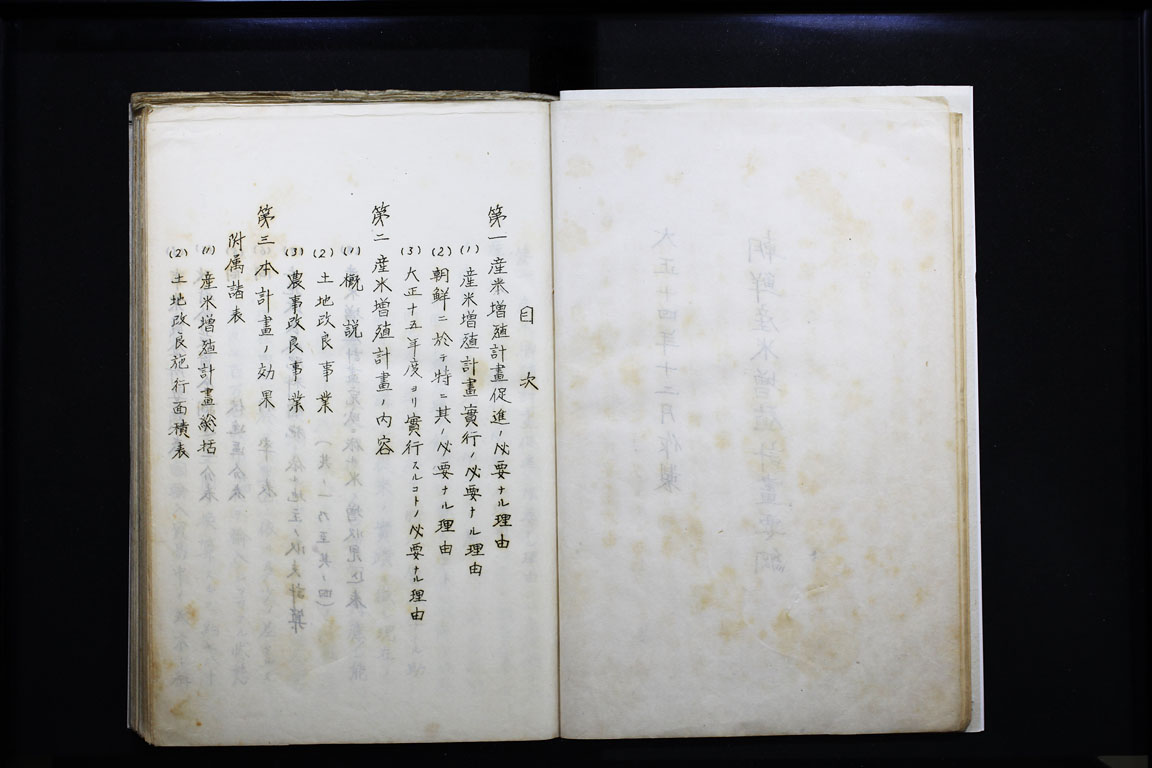 目次
第一 産米増殖計畫促進ノ必要ナル理由
(1) 産米増殖計畫實行ノ必要ナル理由
(2) 朝鮮ニ於テ特ニ其ノ必要ナル理由
(3) 大正十五年度ヨリ實行スルコトノ必要ナル理由
第二 産米増殖計畫ノ内容
(1) 概説
(2) 土地改良事業
(3) 農事改良事業
第三 本計畫ノ効果
附属諸表
(1) 産米増殖計畫総括表
(2) 土地改良施行面積表